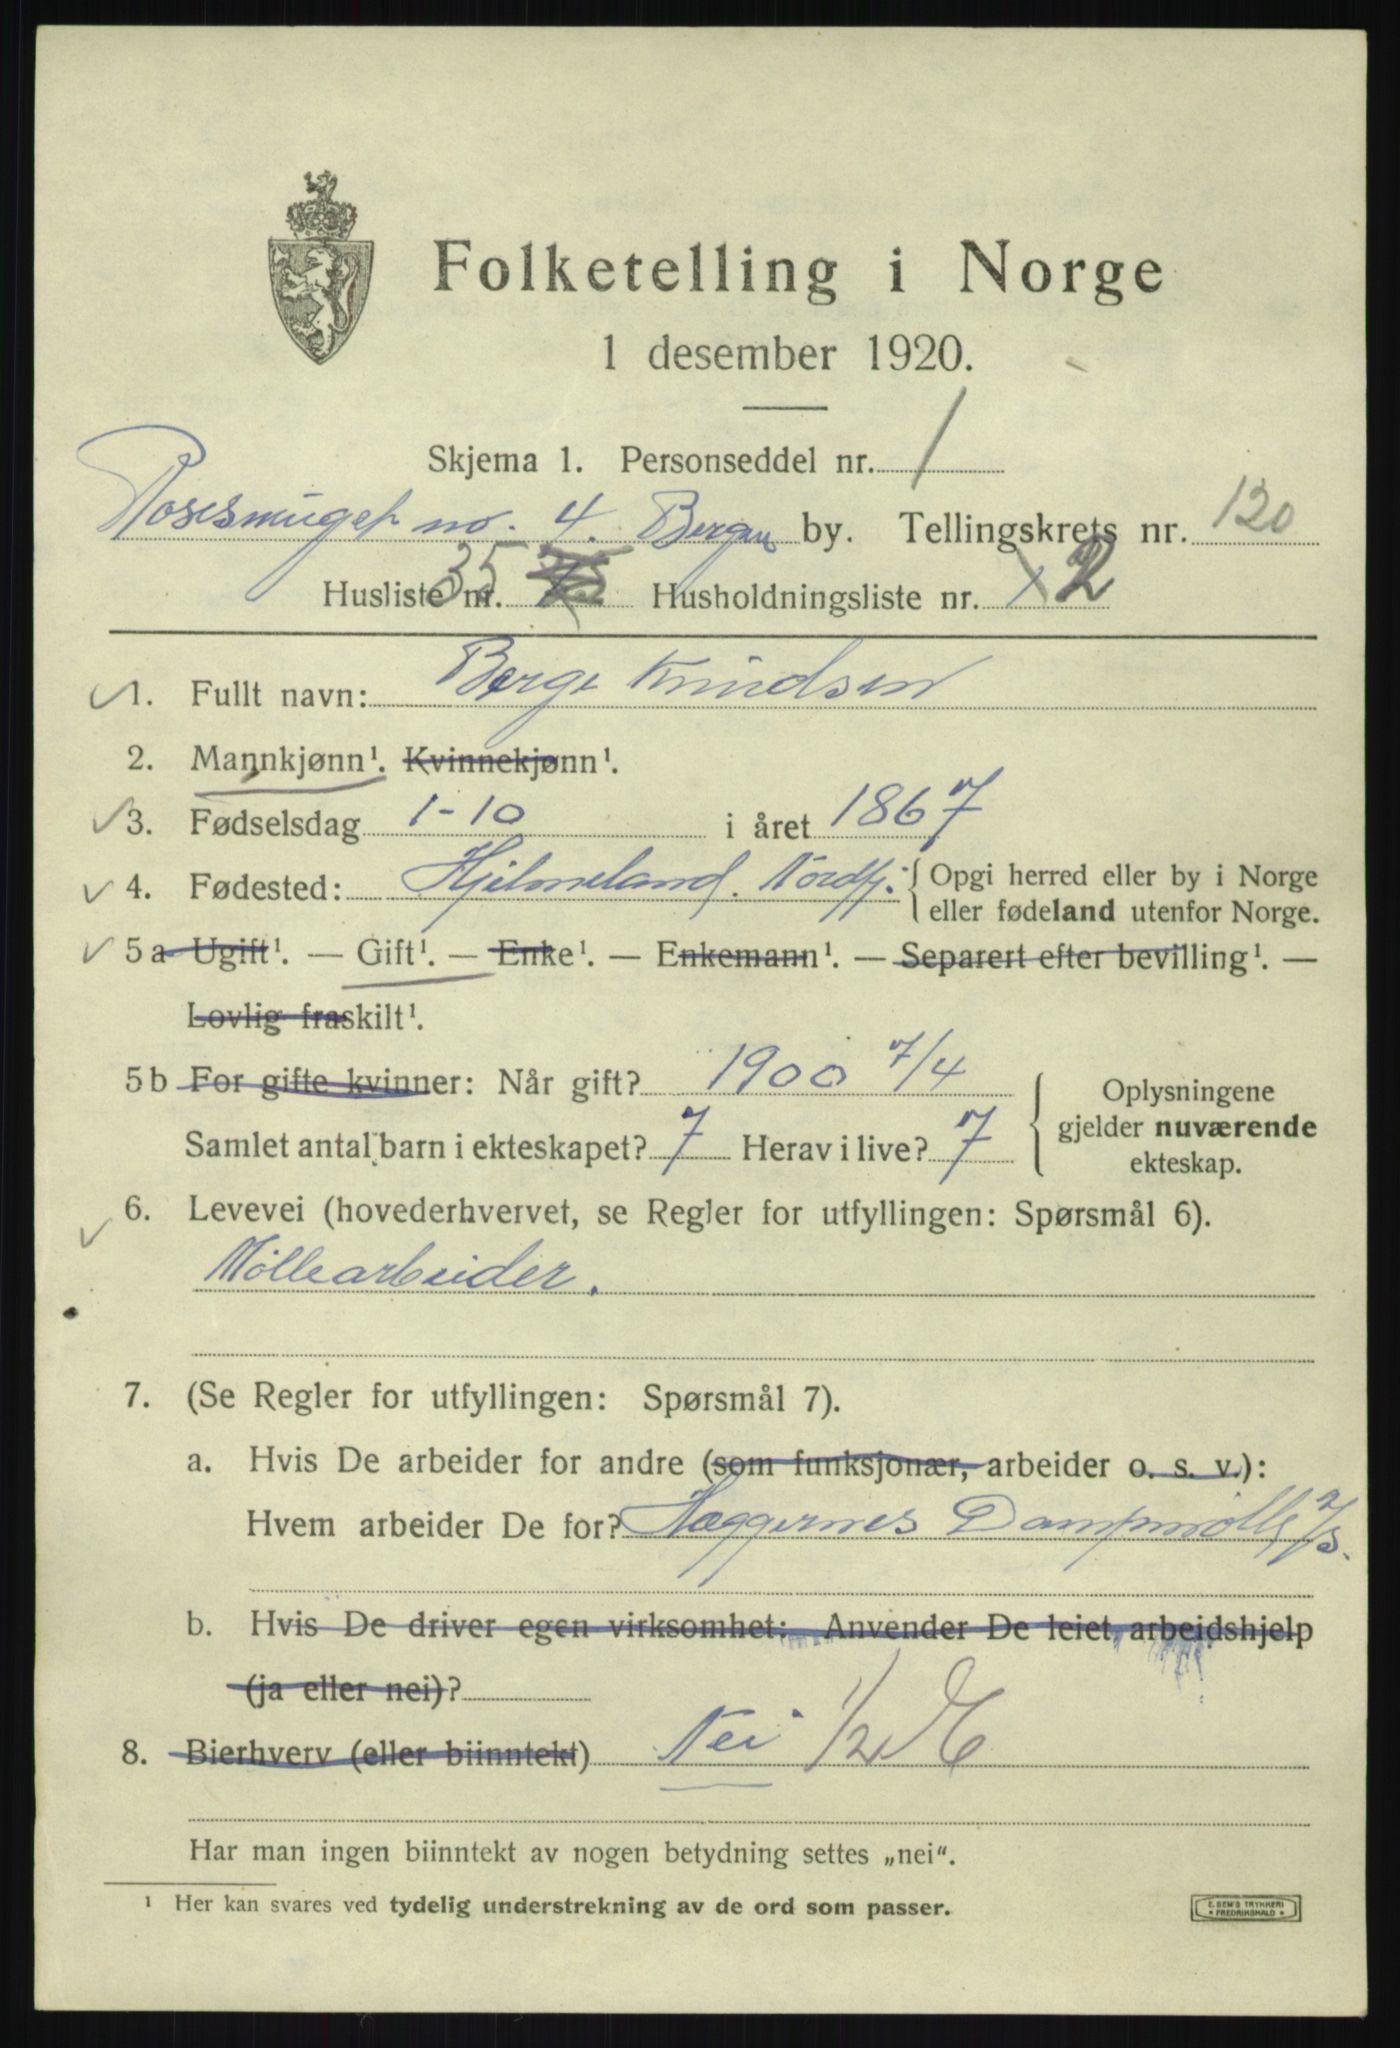 Folketelling i Norge
1 desember 1920.
Skjema 1. Personseddel nr. 1
Rosesmuget no. 4. Bergen by. Tellingskrets nr. 120
Husliste nr. 35 Husholdningsliste nr. 2
1. Fullt navn: Berge Knudsen
2. Mannkjønn¹. Kvinnekjønn¹.
3. Fødselsdag 1-10 i året 1867
4. Fødested: Hjelmeland. Nordfj. Opgi herred eller by i Norge
eller fødeland utenfor Norge.
5a Ugift¹. — Gift¹. — Enke¹. — Enkemann¹. — Separert efter bevilling¹. —
Lovlig fraskilt¹.
5b For gifte kvinner: Når gift? 1900 7/4
Samlet antal barn i ekteskapet? 7 Herav i live? 7
Oplysningene
gjelder nuværende
ekteskap.
6. Levevei (hovederhvervet, se Regler for utfyllingen: Spørsmål 6).
Møllearbeider.
7. (Se Regler for utfyllingen: Spørsmål 7).
a. Hvis De arbeider for andre (som funksjonær, arbeider o. s. v.):
Hvem arbeider De for? Hæggernes Dampmølle A/S.
b. Hvis De driver egen virksomhet: Anvender De leiet arbeidshjelp
(ja eller nei)?
8. Bierhverv (eller biinntekt) Nei 1/2
Har man ingen biinntekt av nogen betydning settes „nei“.
¹ Her kan svares ved tydelig understrekning av de ord som passer.
E. SEM'S TRYKKERI
* FREDRIKSHALD *